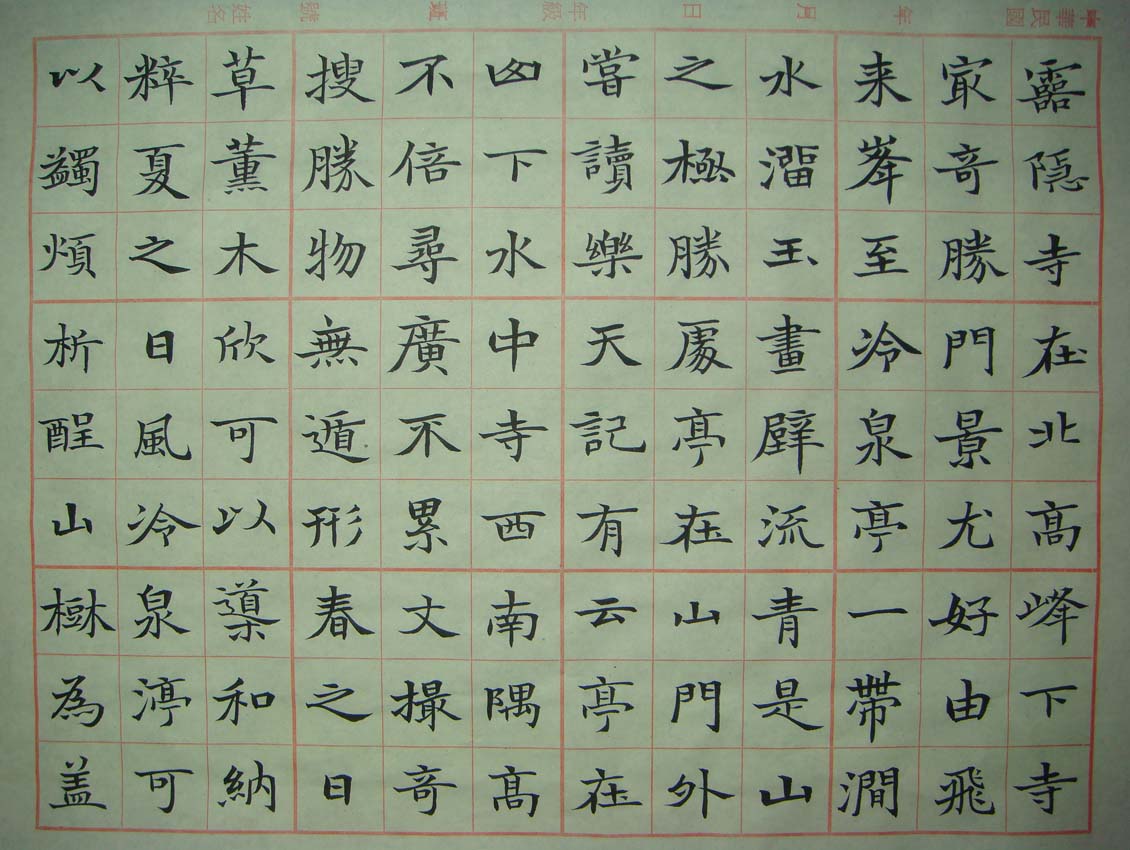 中華民國 年 月 日 年級 號 姓名
靈隐寺在北高峰下寺
冣奇勝門景尤好由飛
来峯至冷泉亭一帶澗
水溜玉畫壁流青是山
之極勝處亭在山門外
嘗讀樂天記有云亭在
山下水中寺西南隅高
不倍尋廣不累丈撮奇
搜勝物無遁形春之日
草薰木欣可以導和納
粹夏之日風冷泉渟可
以蠲煩析酲山樹為盖